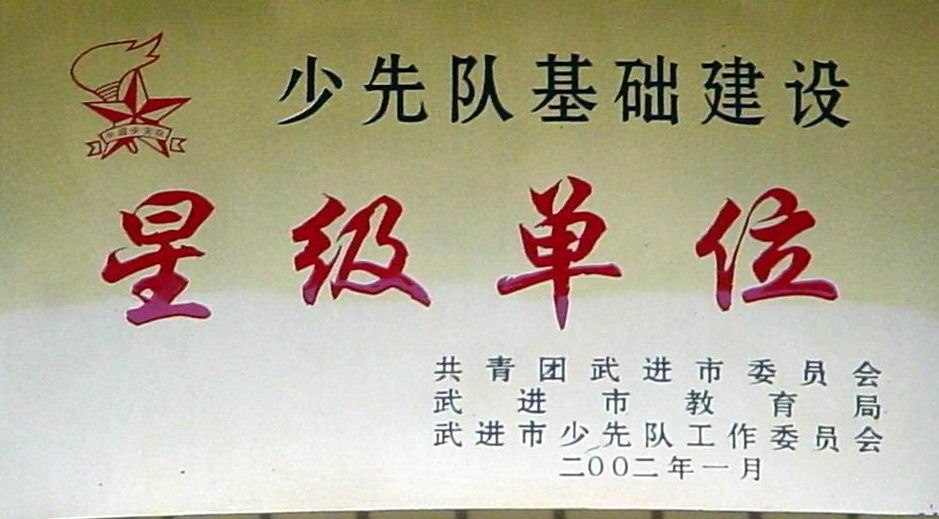 少先队基础建设
星级单位
共青团武进市委员会
武进市教育局
武进市少先队工作委员会
二00二年一月